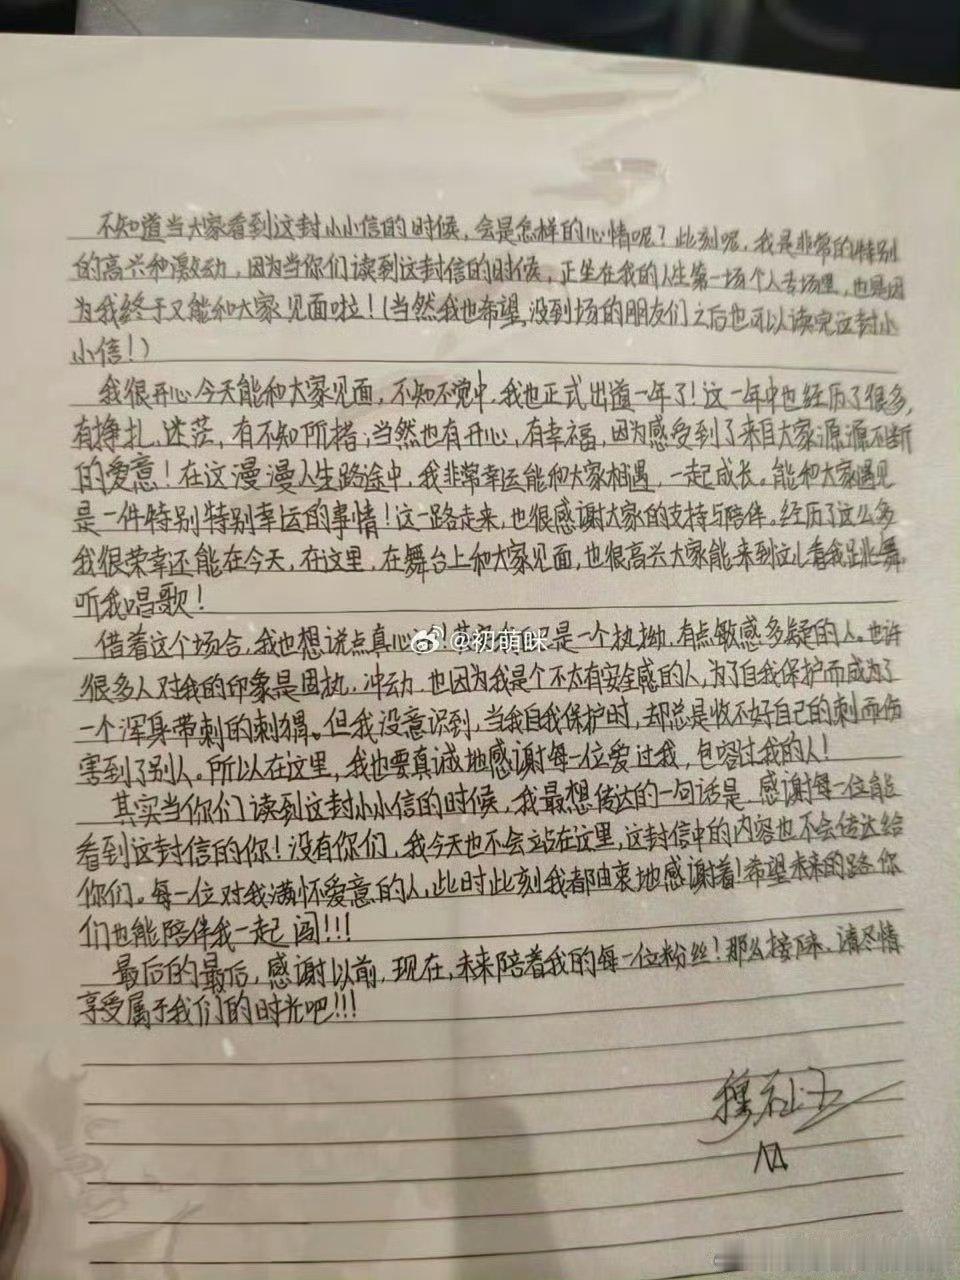 不知道当大家看到这封小小信的时候，会是怎样的心情呢？此刻呢，我是非常的特别
的高兴和激动，因为当你们读到这封信的时候，正坐在我的人生第一场个人专场里，也是因
为我终于又能和大家见面啦！（当然我也希望，没到场的朋友们之后也可以读完这封小
小信！）
我很开心今天能和大家见面，不知不觉中，我也正式出道一年了！这一年中也经历了很多，
有挣扎，迷茫，有不知所措；当然也有开心，有幸福，因为感受到了来自大家源源不断
的爱意！在这漫漫人生路途中，我非常幸运能和大家相遇，一起成长。能和大家遇见
是一件特别特别幸运的事情！这一路走来，也很感谢大家的支持与陪伴。经历了这么多
我很荣幸还能在今天，在这里，在舞台上和大家见面，也很高兴大家能来到这儿看我跳舞
听我唱歌！
借着这个场合，我也想说点真心 是一个执拗，有点敏感多疑的人。也许
@初萌咪
很多人对我的印象是固执，冲动，也因为我是个不太有安全感的人，为了自我保护而成为了
一个浑身带刺的刺猬。但我没意识到，当我自我保护时，却总是收不好自己的刺而伤
害到了别人。所以在这里，我也要真诚地感谢每一位爱过我，包容过我的人！
其实当你们读到这封小小信的时候，我最想传达的一句话是，感谢每一位能
看到这封信的你！没有你们，我今天也不会站在这里，这封信中的内容也不会传达给
你们。每一位对我满怀爱意的人，此时此刻我都由衷地感谢着！希望未来的路你
们也能陪伴我一起闯！！！
最后的最后，感谢以前，现在，未来陪着我的每一位粉丝！那么接下来，请尽情
享受属于我们的时光吧！！！
穆祉